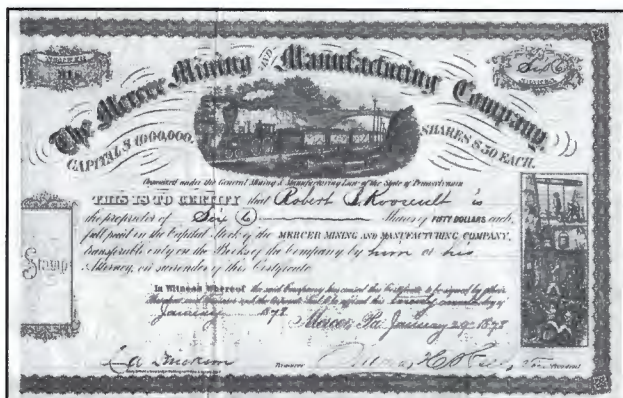 NUMBER
Six
SHARES
The Mercer Mining AND Manufacturing Company,
CAPITAL $ 1000,000,
SHARES $ 50 EACH.
Organized under the General Mining & Manufacturing Law of the State of Pennsylvania
THIS IS TO CERTIFY that Robert Roosevelt is
the proprietor of Six (6) Shares of FIFTY DOLLARS each,
full paid in the Capital Stock of the MERCER MINING AND MANUFACTURING COMPANY,
transferable only on the Books of the Company by him or his
Attorney, on surrender of this Certificate
Stamp
In Witness Whereof the said Company has caused this Certificate to be signed by their
President and Treasurer and the Corporate Seal to be affixed this day of
January 1878
Mercer, Pa. January 29 1878
Treasurer
President